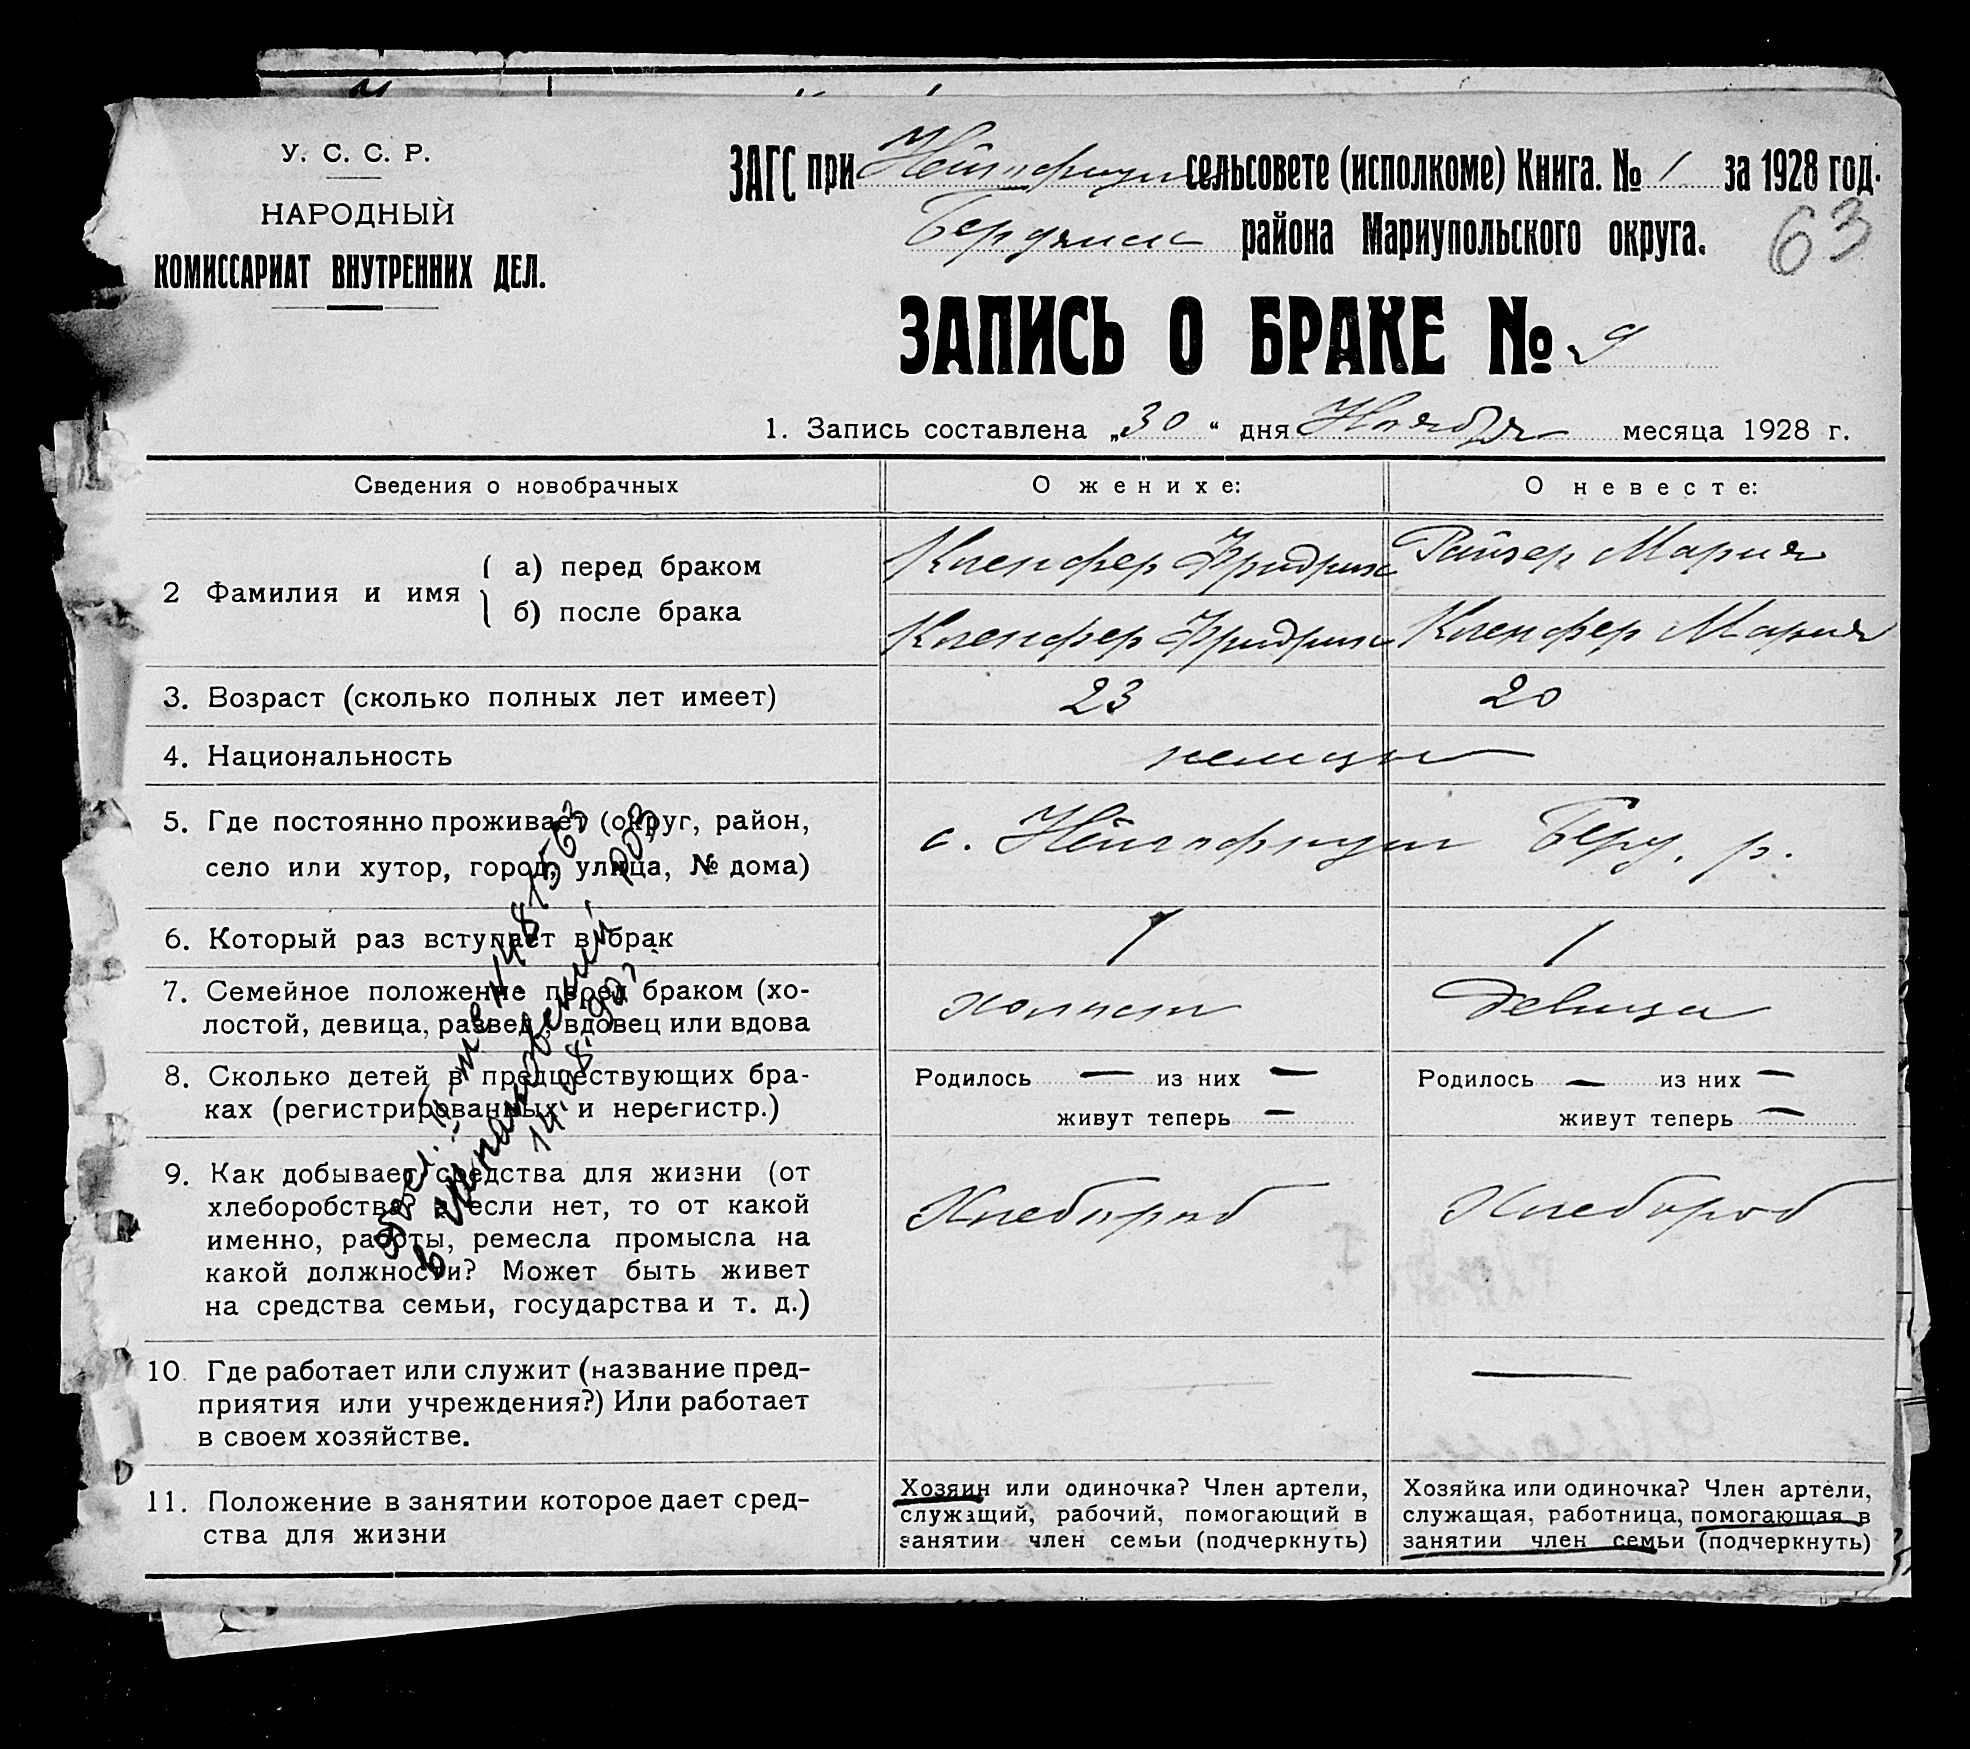 У. С. С. Р.
НАРОДНЫЙ
КОМИССАРИАТ ВНУТРЕННИХ ДЕЛ.
ЗАГС при сельсовете (исполкоме) Книга. № 1 за 1928 год.
района Мариупольского округа.
63
ЗАПИСЬ О БРАКЕ № 9
1. Запись составлена „30“ дня Ноября месяца 1928 г.
Сведения о новобрачных
О женихе:
О невесте:
2 Фамилия и имя
а) перед браком
б) после брака
Клепфер Фридрих
Райзер Мария
Клепфер Фридрих
Клепфер Мария
3. Возраст (сколько полных лет имеет)
23
20
4. Национальность
немцы
5. Где постоянно проживает (округ, район,
село или хутор, город, улица, № дома)
с. р.
6. Который раз вступает в брак
1
1
7. Семейное положение перед браком (хо-
лостой, девица, развед., вдовец или вдова
холост
девица
8. Сколько детей в предшествующих бра-
ках (регистрированных и нерегистр.)
Родилось — из них —
живут теперь —
Родилось — из них —
живут теперь —
9. Как добывает средства для жизни (от
хлеборобства, а если нет, то от какой
именно, работы, ремесла промысла на
какой должности? Может быть живет
на средства семьи, государства и т. д.)
Хлебороб
Хлебороб
10. Где работает или служит (название пред-
приятия или учреждения?) Или работает
в своем хозяйстве.
—
11. Положение в занятии которое дает сред-
ства для жизни
Хозяин или одиночка? Член артели,
служащий, рабочий, помогающий в
занятии член семьи (подчеркнуть)
Хозяйка или одиночка? Член артели,
служащая, работница, помогающая в
занятии член семьи (подчеркнуть)